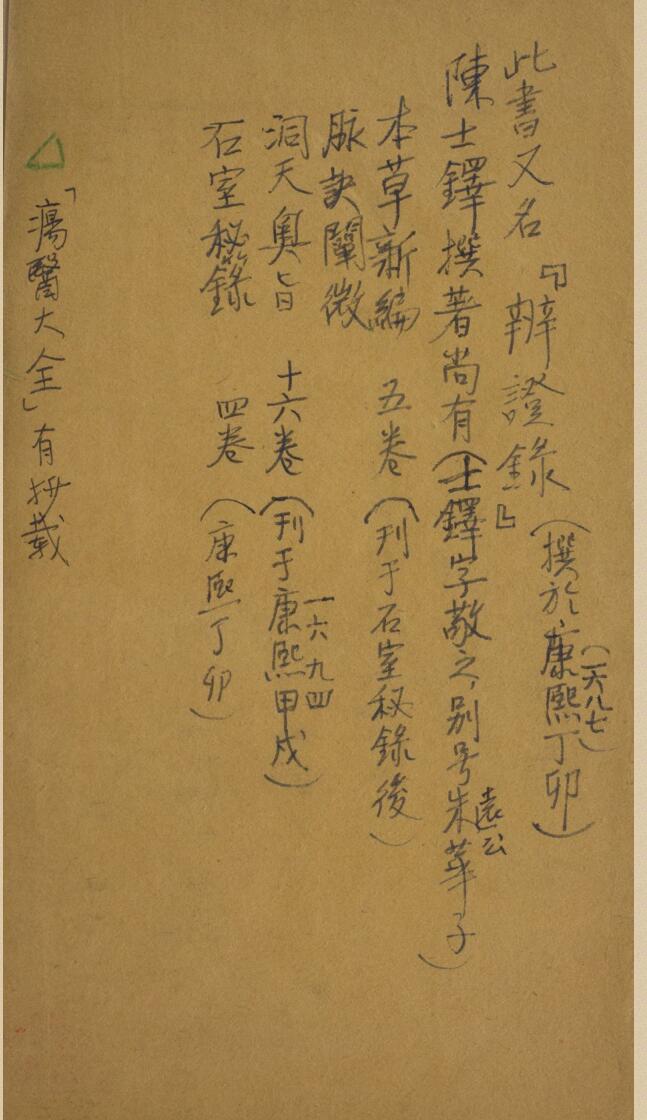 此書又名『辨證錄』(撰於康熙丁卯)
(一六八七)
陳士鐸撰著尚有(士鐸字敬之,別号朱華子)
遠公
本草新編 五卷(刊于石室秘錄後)
脉訣闡微
洞天奧旨 十六卷(刊于康熙甲戌)
一六九四
石室秘錄 四卷(康熙丁卯)
「瘍醫大全」有抄載